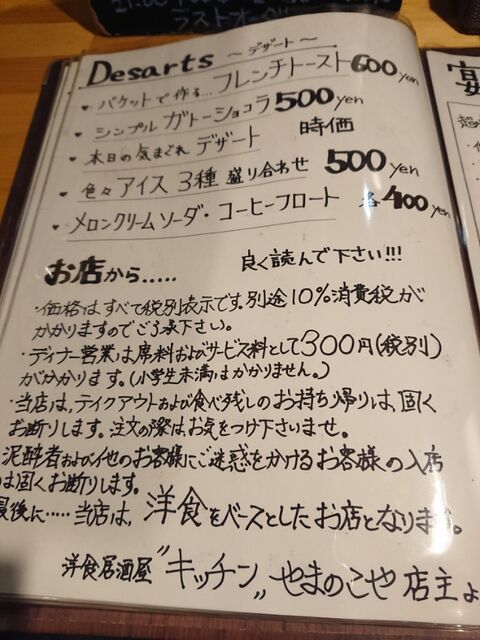 ラストオーダー
Desarts ～デザート～
♥ バケットで作る… フレンチトースト 600 yen
♥ シンプル ガトーショコラ 500 yen
♥ 本日の気まぐれ デザート 時価
♥ 色々 アイス 3種 盛り合わせ 500 yen
♥ メロンクリームソーダ・コーヒーフロート 各400 yen
お店から….. 良く読んで下さい!!!
・価格はすべて税別表示です。別途10%消費税が
かかりますのでご了承下さい。
・ディナー営業は席料およびサービス料として300円(税別)
がかかります。(小学生未満はかかりません。)
・当店は、テイクアウトおよび食べ残しのお持ち帰りは、固く
お断りします。注文の際はお気をつけ下さいませ。
泥酔者および他のお客様にご迷惑をかけるお客様の入店
は固くお断りします。
最後に….. 当店は、洋食をベースとしたお店となります。
洋食居酒屋 〝キッチン〟 やまのこや 店主よ
宴